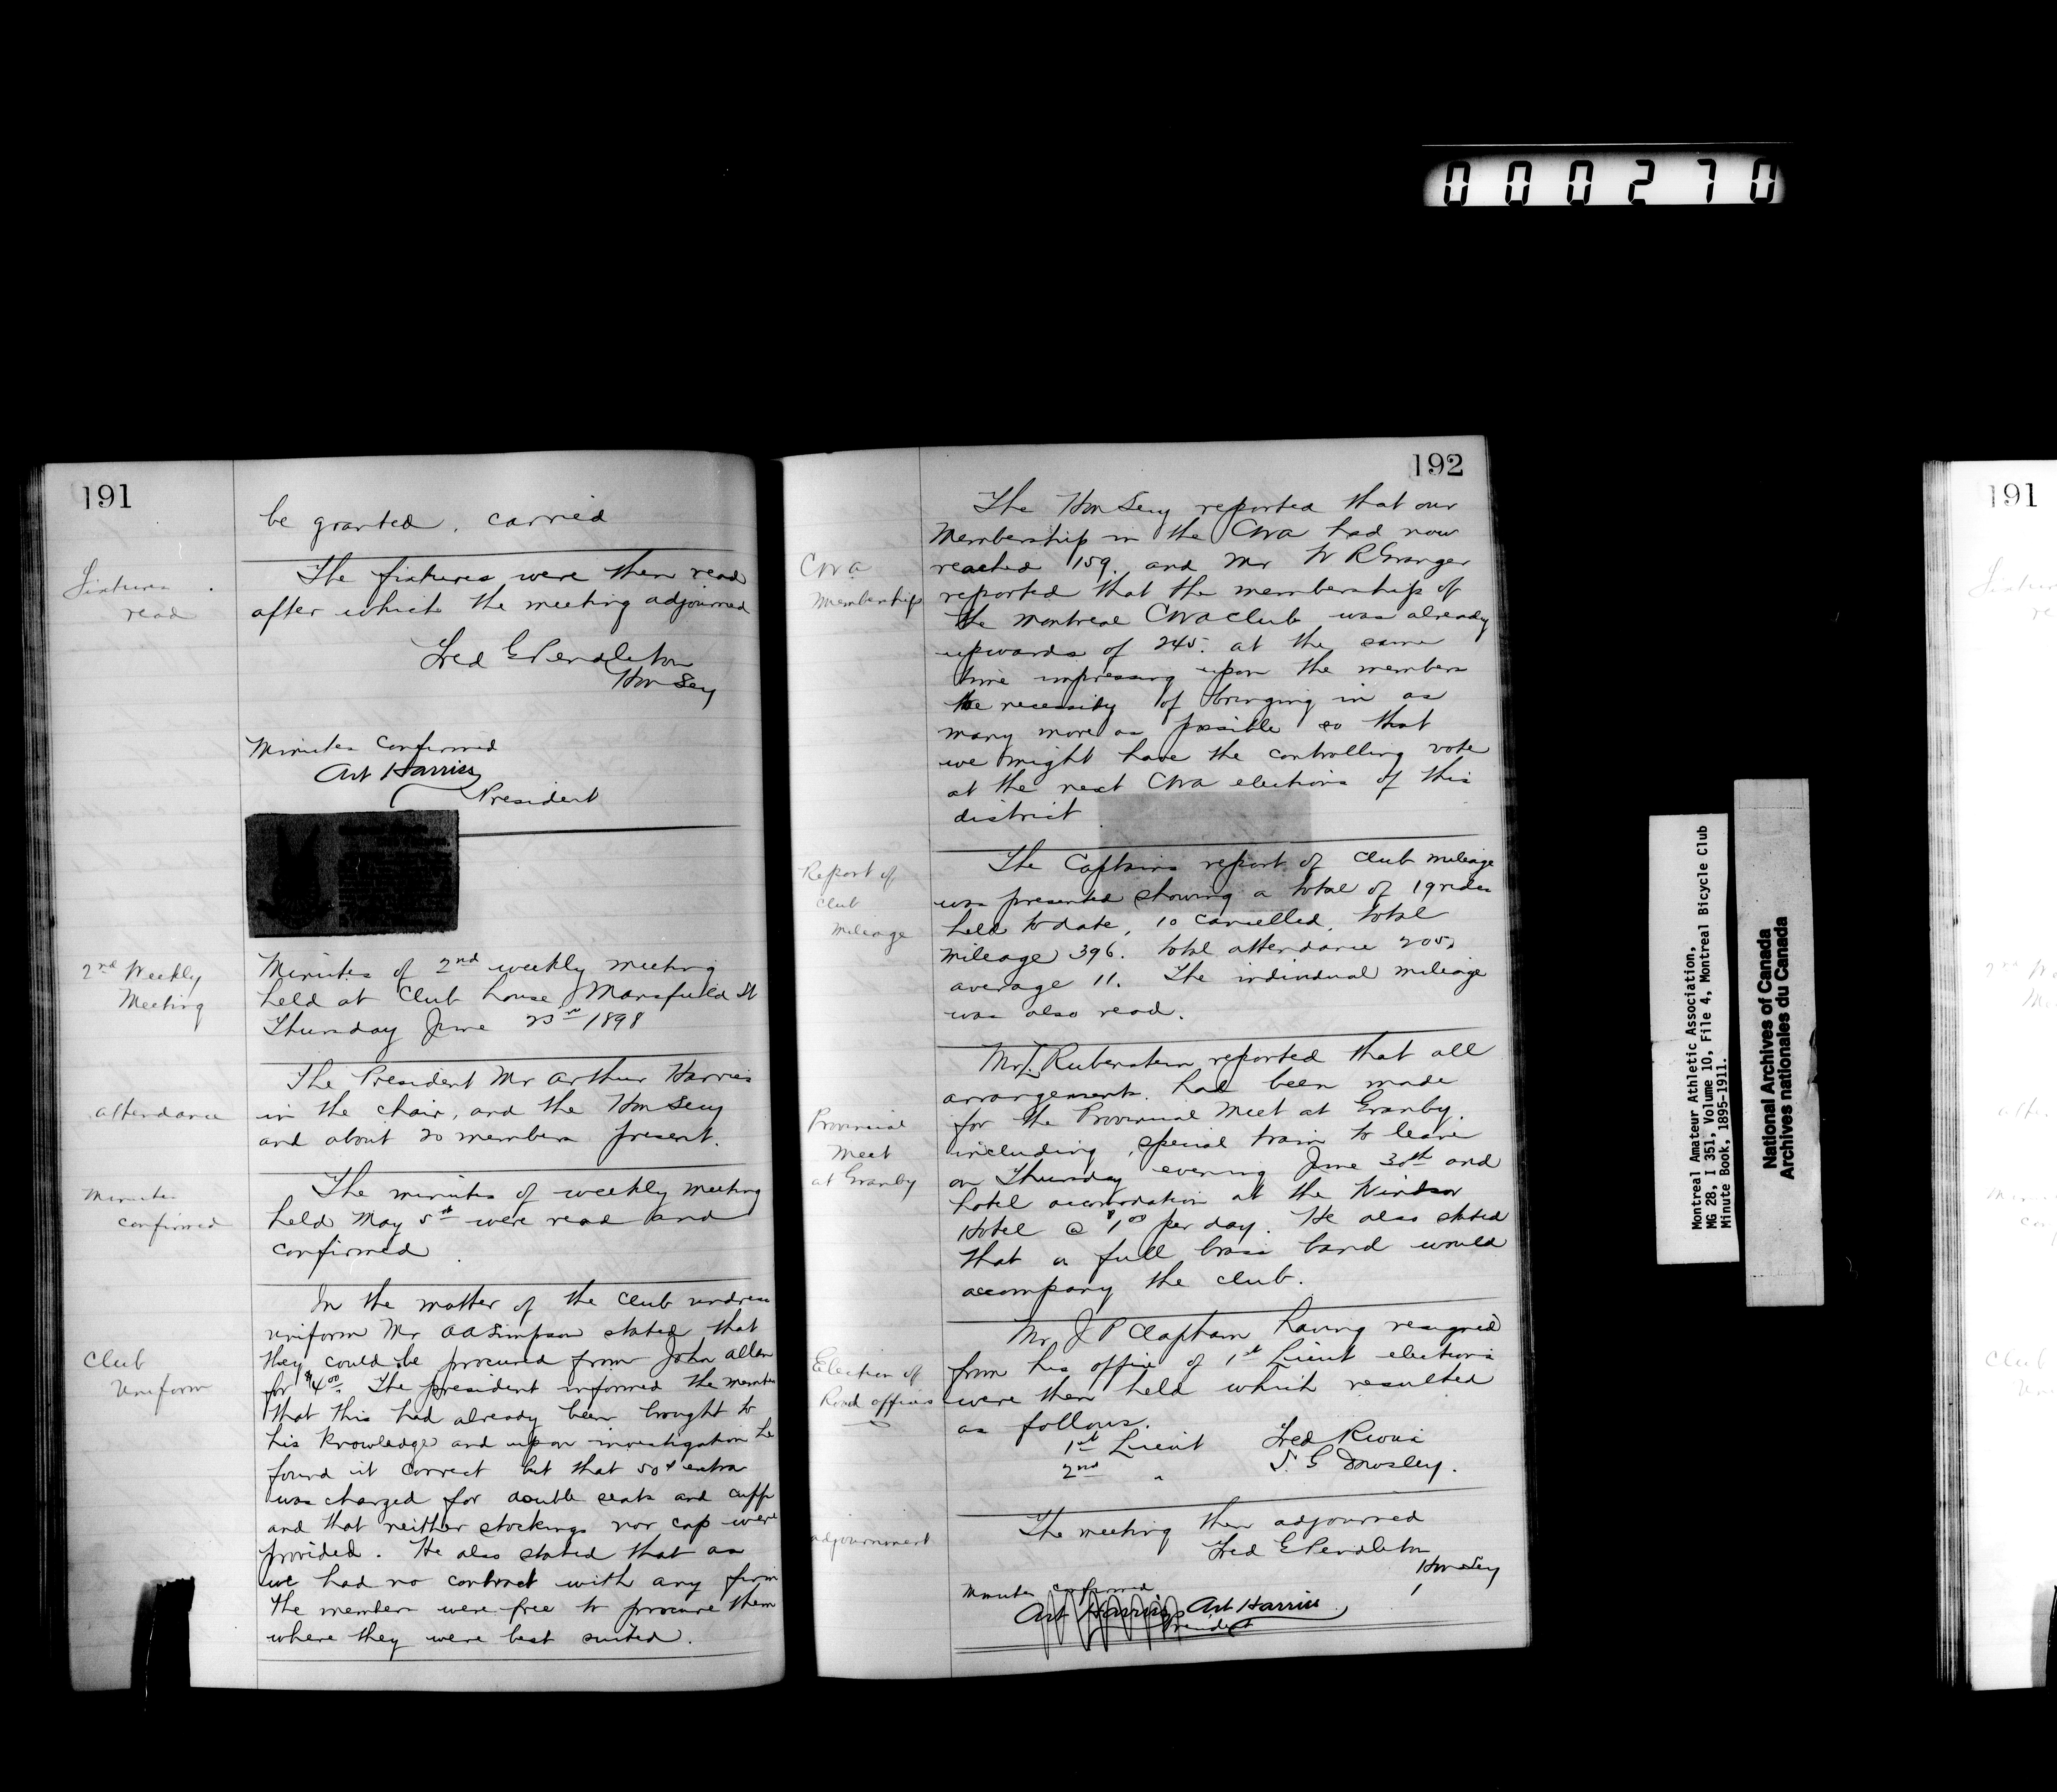 000270
191
be granted. carried
Fixtures
read
The fixtures were then read
after which the meeting adjourned
Fred G Pendleton
Hon Secy
Minutes Confirmed
Art Harriss
President
2nd Weekly
Meeting
Minutes of 2nd weekly meeting
held at Club house, Mansfield St
Thursday June 23rd 1898
attendance
The President Mr Arthur Harriss
in the chair, and the Hon Secy
and about 20 members present.
Minutes
confirmed
The minutes of weekly meeting
held May 5th were read and
confirmed.
Club
Uniform
In the matter of the Club undress
uniform Mr AA Simpson stated that
they could be procured from John Allan
for $4.00. The president informed the members
that this had already been brought to
his knowledge and upon investigation he
found it correct but that 50¢ extra
was charged for double seats and cuffs
and that neither stockings nor cap were
provided. He also stated that as
we had no contract with any firm
the members were free to procure them
where they were best suited.
192
CWA
Membership
The Hon Secy reported that our
Membership in the CWA had now
reached 159. and Mr W R Granger
reported that the membership of
the Montreal CWA club was already
upwards of 245. at the same
time impressing upon the members
the necessity of bringing in as
many more as possible so that
we might have the controlling vote
at the next CWA elections of this
district
Report of
Club
Mileage
The Captains report of Club mileage
was presented showing a total of 19 rides
held to date, 10 cancelled, total
mileage 396. total attendance 205,
average 11. The individual mileage
was also read.
Provincial
Meet
at Granby
Mr L Rubenstein reported that all
arrangements had been made
for the Provincial Meet at Granby.
including special train to leave
on Thursday evening June 30th and
hotel accomodation at the Windsor
Hotel @ $1.00 per day. He also stated
that a full brass band would
accompany the club.
Election of
Road officers
Mr J P Clapham having resigned
from his office of 1st Lieut elections
were then held which resulted
as follows.
1st Lieut Fred
2nd " S. G
adjournment
The meeting then adjourned
Fred G Pendleton
Hon Secy
Minutes confirmed
Art Harriss Art Harriss
President
Montreal Amateur Athletic Association,
MG 28, I 351, Volume 10, File 4, Montreal Bicycle Club
Minute Book, 1895-1911.
National Archives of Canada
Archives nationales du Canada
191